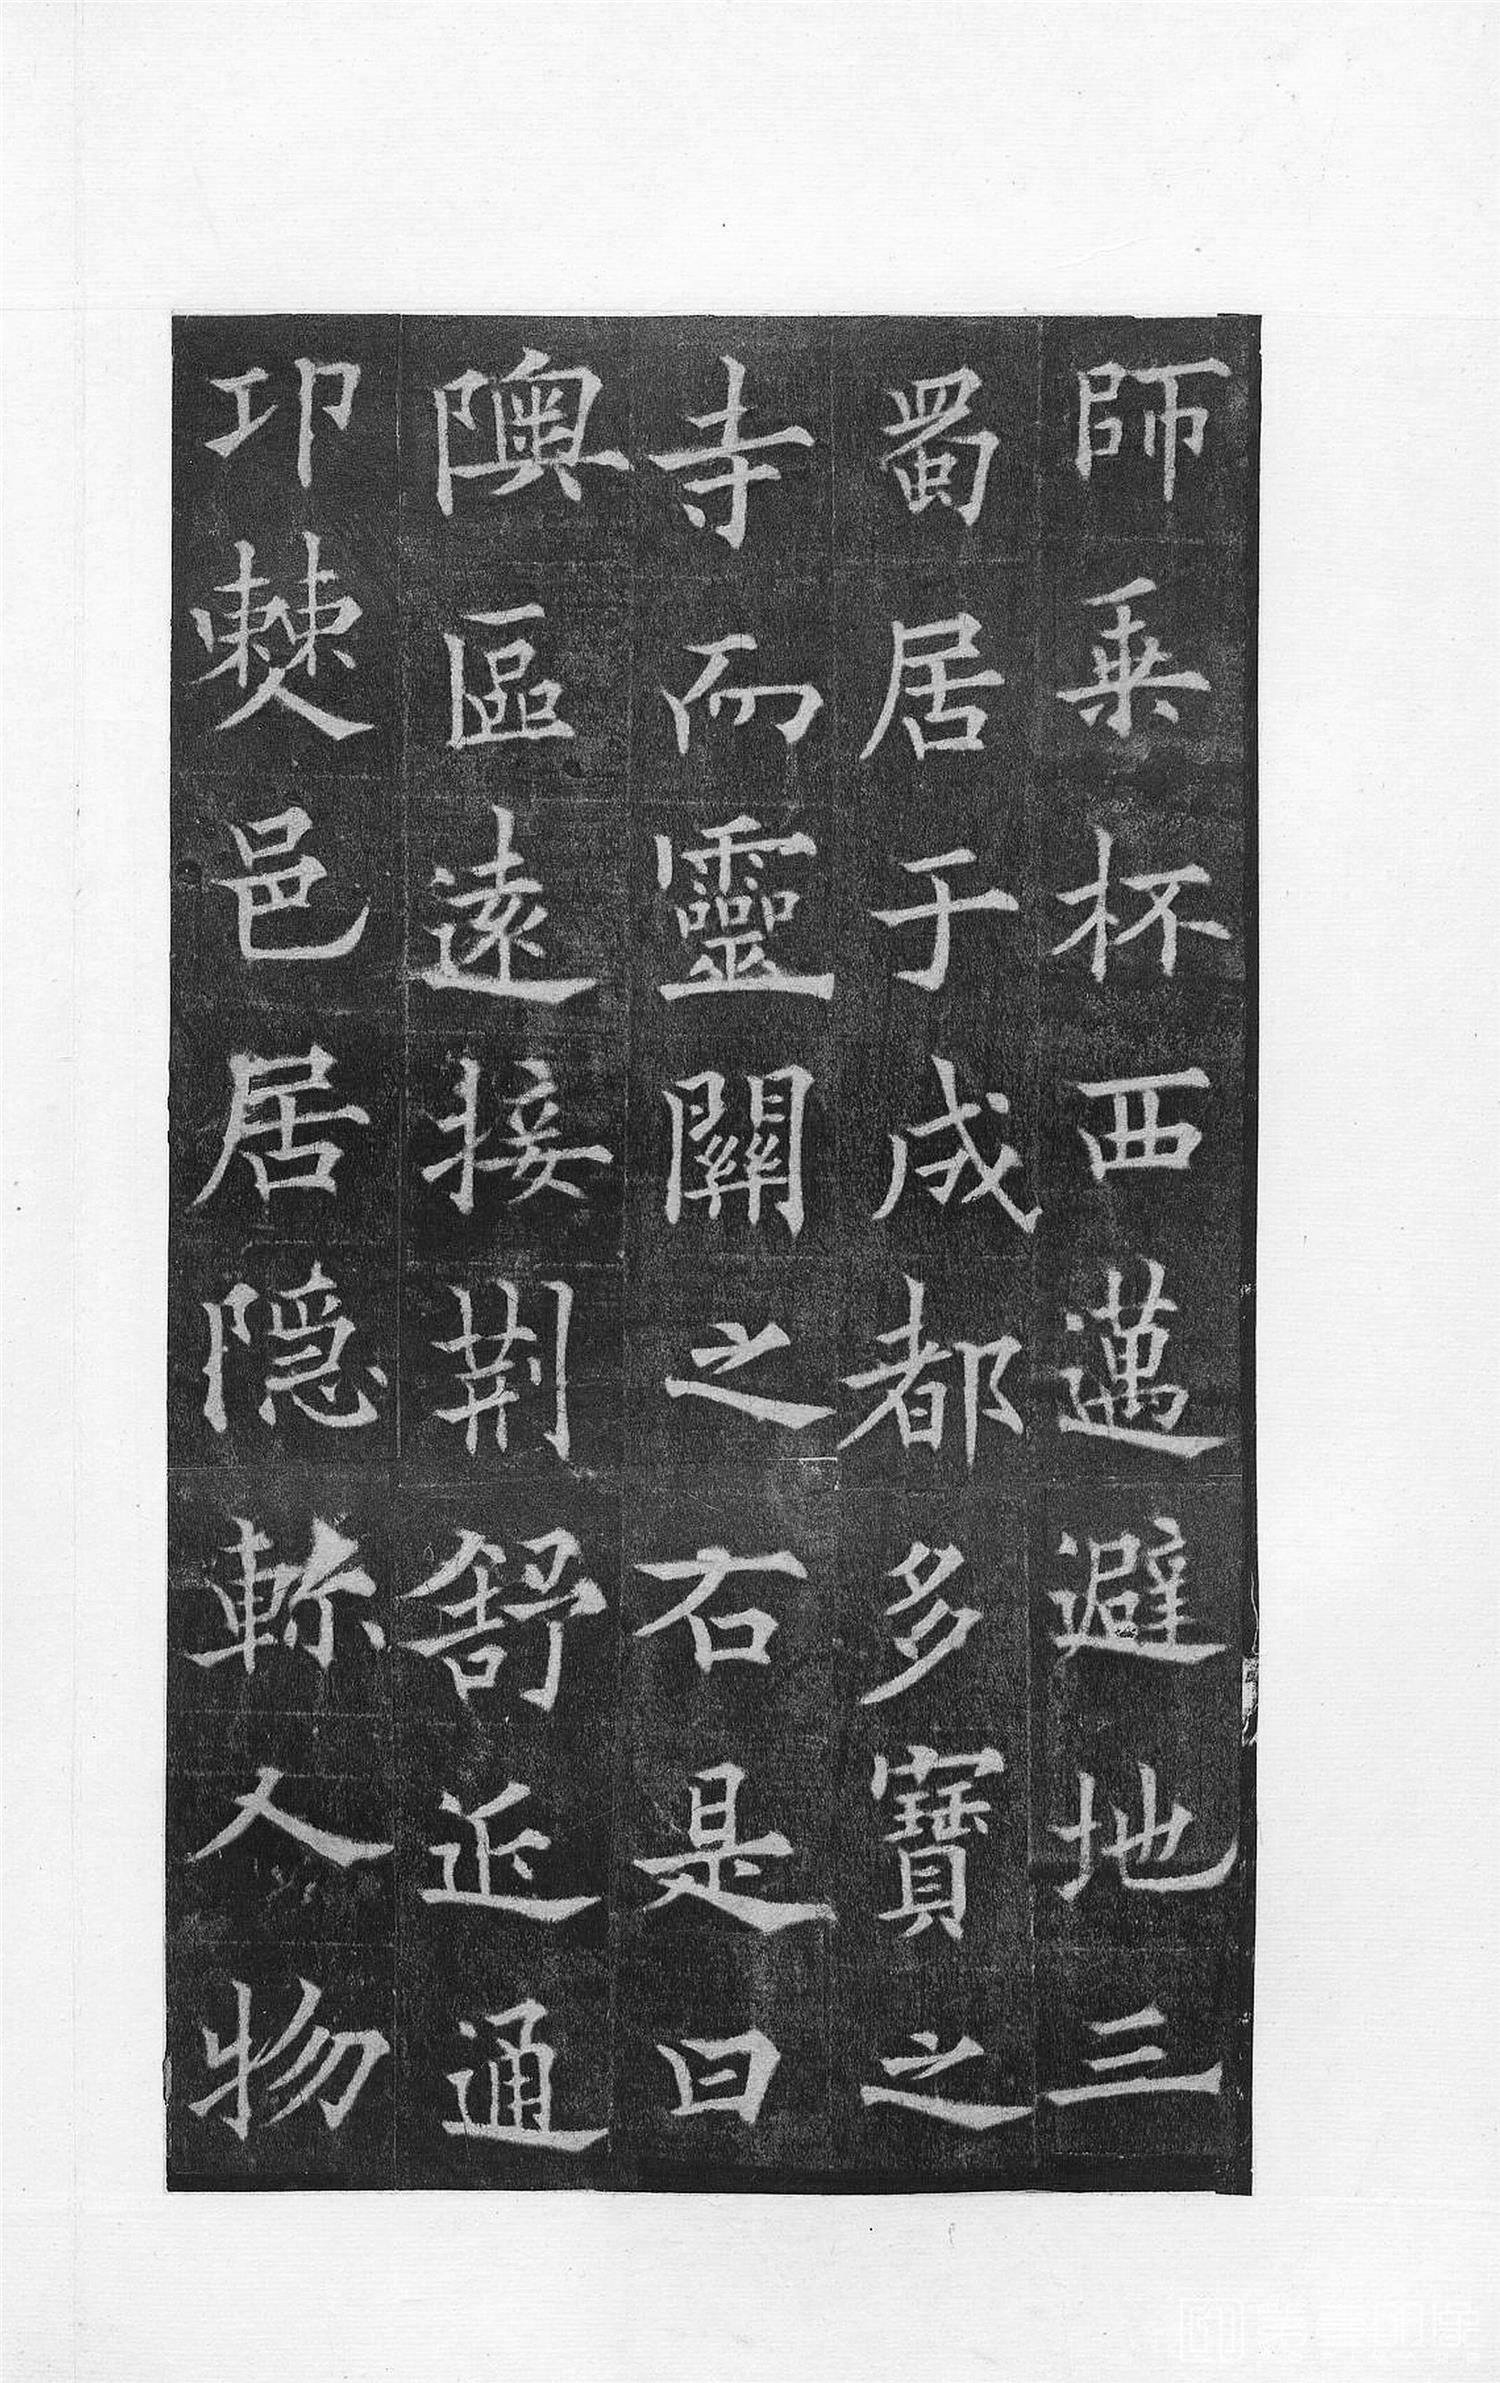 師乗杯西邁避地三
蜀居于成都多寶之
寺而靈關之右是曰
隩區遠接荆舒近通
卭僰邑居隱軫人物